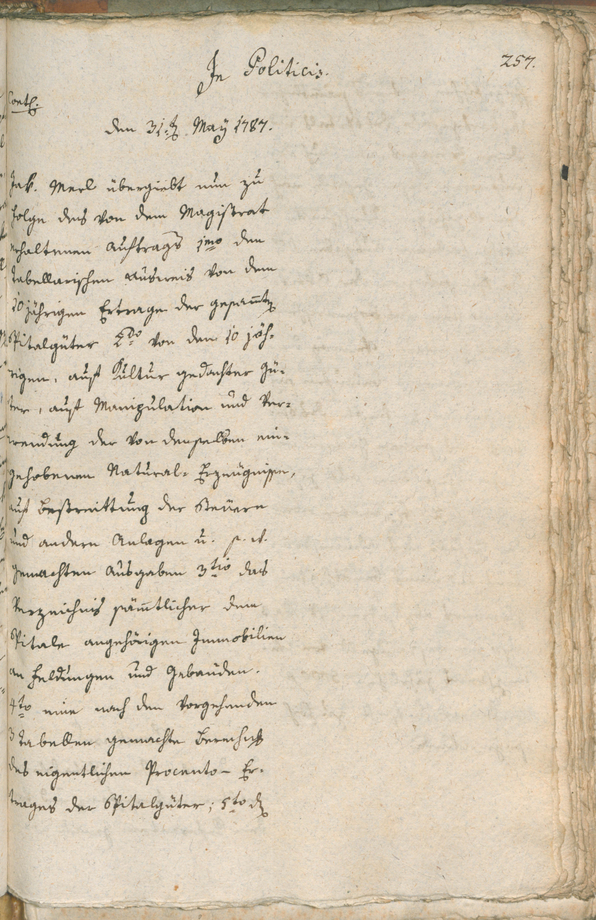 In Politicis.
257.
den 31.t May 1787.
Jak. Merl übergiebt nun zu
folge des von dem Magistrat
erhaltenen Auftrags 1mo den
tabellarischen Ausweis von dem
10 jährigen Ertrage der gesammten
Spitalgüter 2do von den 10 jäh-
rigen, auf Kultur gedachter Gü-
ter, auf Manipulation und Ver-
wendung der von denselben ein-
gehobenen Natural-Erzeugnissen,
auf Bestreittung der Steuern
und andern Anlagen u. s. w.
gemachten Ausgaben 3tio das
Verzeichnis sämmtlicher dem
Spitale angehörigen Immobilien
an Feldungen und Gebäuden.
4to eine nach den vorgehenden
3 Tabellen gemachte Berechng
des eigentlichen Procento-Er-
trages der Spitalgüter; 5to